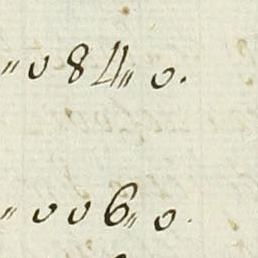 " 0 84 " 0.
" 0 0 6 " 0.